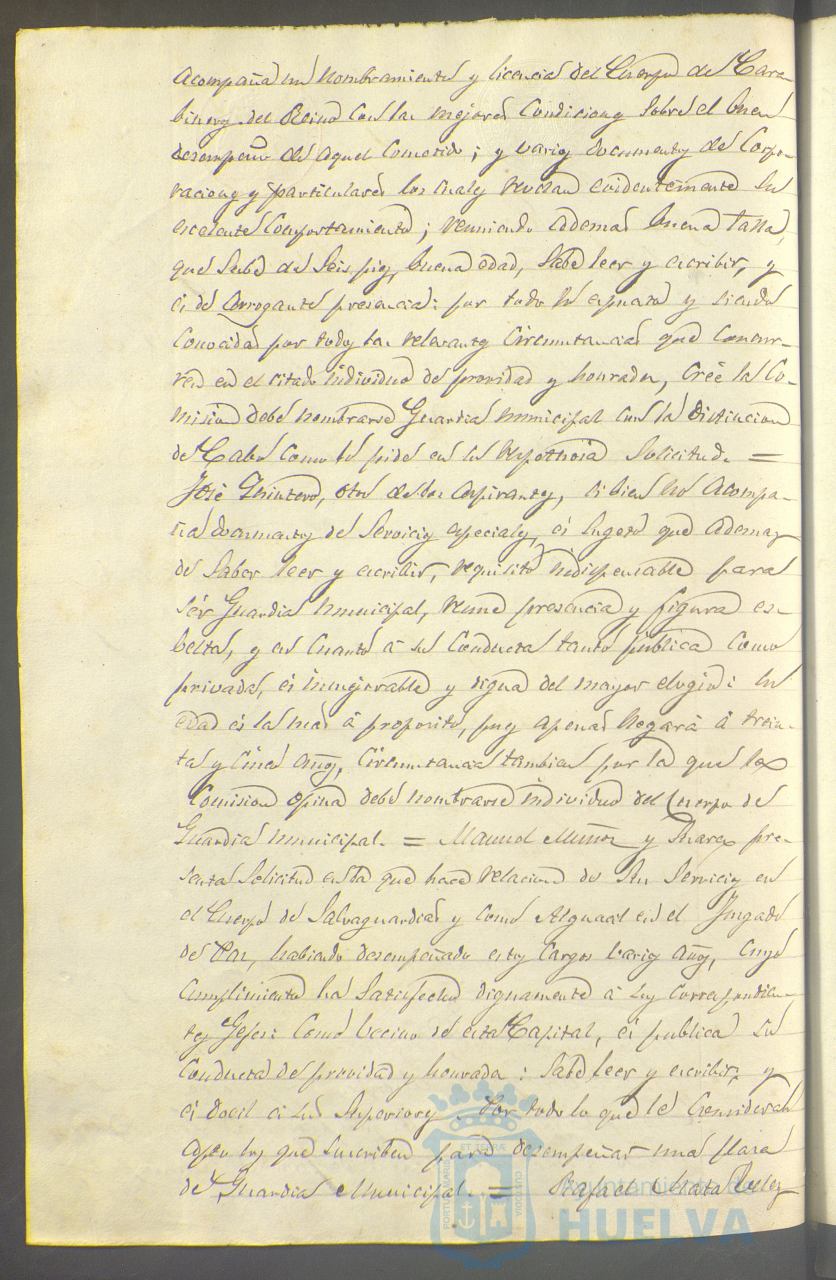 acompaña su nombramiento y licencia del Cuerpo de Cara-
bineros del Reino con las mejores condiciones sobre el buen
desempeño de aquel cometido; y varios documentos de Corpo-
raciones y particulares los cuales revelan evidentemente su
escelente comportamiento; reuniendo ademas buena talla,
que sube de seis pies, buena edad, sabe leer y escribir, y
es de arrogante presencia: por todo lo espuesto y siendo
conocidas por todos las relevantes circunstancias que concur-
ren en el citado individuo de providad y honradez, cree la Co-
mision debe nombrarse Guardia municipal con la distincion
de Cabo como lo pide en su respetuosa solicitud. =
José Quintero, otro de los aspirantes, si bien no acompa-
ña documentos de servicios especiales, es sugeto que ademas
de saber leer y escribir, requisito indispensable para
ser Guardia municipal, reune presencia y figura es-
belta, y en cuanto á su conducta tanto pública como
privada, es inmejorable y digna del mayor elogio: su
edad es la mas á proposito, pues apenas llegará á trein-
ta y cinco años, circunstancia tambien por la que la
Comision opina debe nombrarse individuo del Cuerpo de
Guardia municipal. = Manuel Muñoz y pre-
senta solicitud en la que hace relacion de sus servicios en
el Cuerpo de Salvaguardias y como Alguacil en el Juzgado
de Paz, habiendo desempeñado estos cargos varios años, cuyo
cumplimiento ha satisfecho dignamente á sus correspondien-
tes Gefes: como vecino de esta Capital, es publica su
conducta de providad y honrada: sabe leer y escribir, y
es docil á sus Superiores. Por todo lo que le consideran
apto los que suscriben para desempeñar una plaza
de Guardia Municipal. = Rafael Mata
Ayuntamiento de
HUELVA